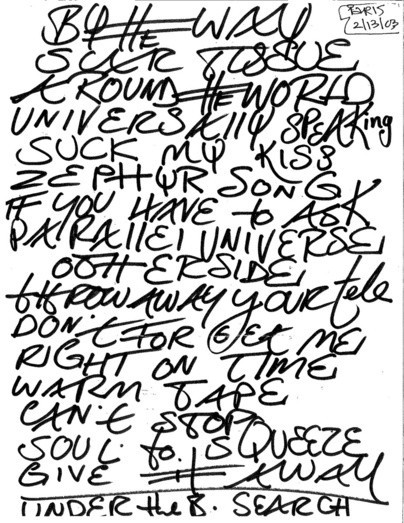 PARIS
2/13/03
BY tHE WAY
SCAR TISSUE
AROUND tHE WORLD
UNIVERSAllY SPEAKing
SUCK MY KISS
ZEPHYR SONG
IF YOU HAVE to ASK
PARAllEl UNIVERSE
OtHERSIDE
tHROW AWAY YOUR tele
DON't FORGEt ME
RIGHT ON TIME
WARM TAPE
CAN't STOP
SOUL to SQUEEZE
GIVE It AWAY
UNDER the B. SEARCH